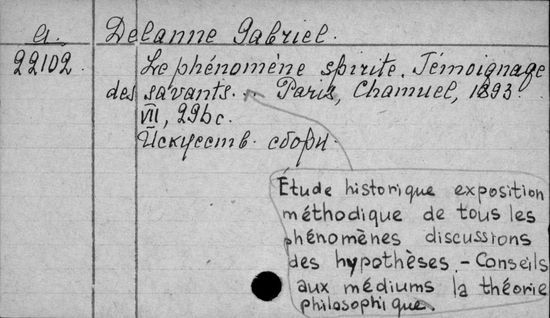 a. Delanne Gabriel.
22102. Le phénomène spirite. Témoignage
des savants. .. Paris, Chamuel, 1893.
VII, 296 с.
Искусств. сборн.
Étude historique exposition
méthodique de tous les
phénomènes discussions
des hypothèses. - Conseils
aux médiums la théorie
philosophique.